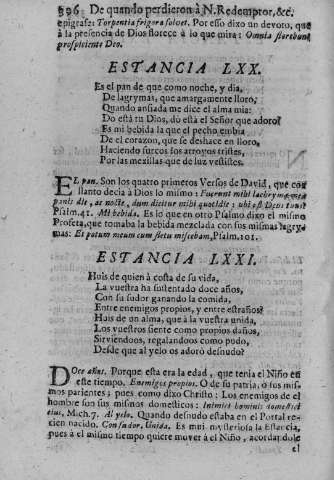 596 De quando perdieron à N. Redemptor, &c.
epigrafe: Torpentia frigora solvet. Por esso dixo un devoto, que
à la presencia de Dios florece à lo que mira: Omnia florebunt
prospiciente Deo.
ESTANCIA LXX.
Es el pan de que como noche, y dia,
De lagrymas, que amargamente lloro;
Quando ansiada me dice el alma mia:
Do està tu Dios, do està el Señor que adoro?
Es mi bebida la que el pecho embia
De el corazon, que se deshace en lloro,
Haciendo surcos sus arroyos tristes,
Por las mexillas que de luz vestistes.
EL pan. Son los quatro primeros Versos de David, que con
llanto decia à Dios lo mismo: Fuerunt mihi lacrymæ meæ
panis die, ac nocte, dum dicitur mihi quotidie: ubi est Deus tuus?
Psalm. 41. Mi bebida. Es lo que en otro Psalmo dixo el mismo
Profeta, que tomaba la bebida mezclada con sus mismas lagry-
mas: Et potum meum cum fletu miscebam, Psalm. 101.
ESTANCIA LXXI.
Huis de quien à costa de su vida,
La vuestra ha sustentado doce años,
Con su sudor ganando la comida,
Entre enemigos propios, y entre estraños?
Huis de un alma, que à la vuestra unida,
Los vuestros siente como propios daños,
Sirviendoos, regalandoos como pudo,
Desde que al yelo os adorò desnudo?
DOce años. Porque esta era la edad, que tenia el Niño en
este tiempo. Enemigos propios. O de su patria, ò sus mis-
mos parientes; pues como dixo Christo: Los enemigos de el
hombre son sus mismos domesticos: Inimici hominis domestici
eius, Mich. 7. Al yelo. Quando desnudo estaba en el Portal re-
cien nacido. Con su sudor. Unida. Es mui mysteriosa la Estancia,
pues à el mismo tiempo quiere mover à el Niño, acordandole
el